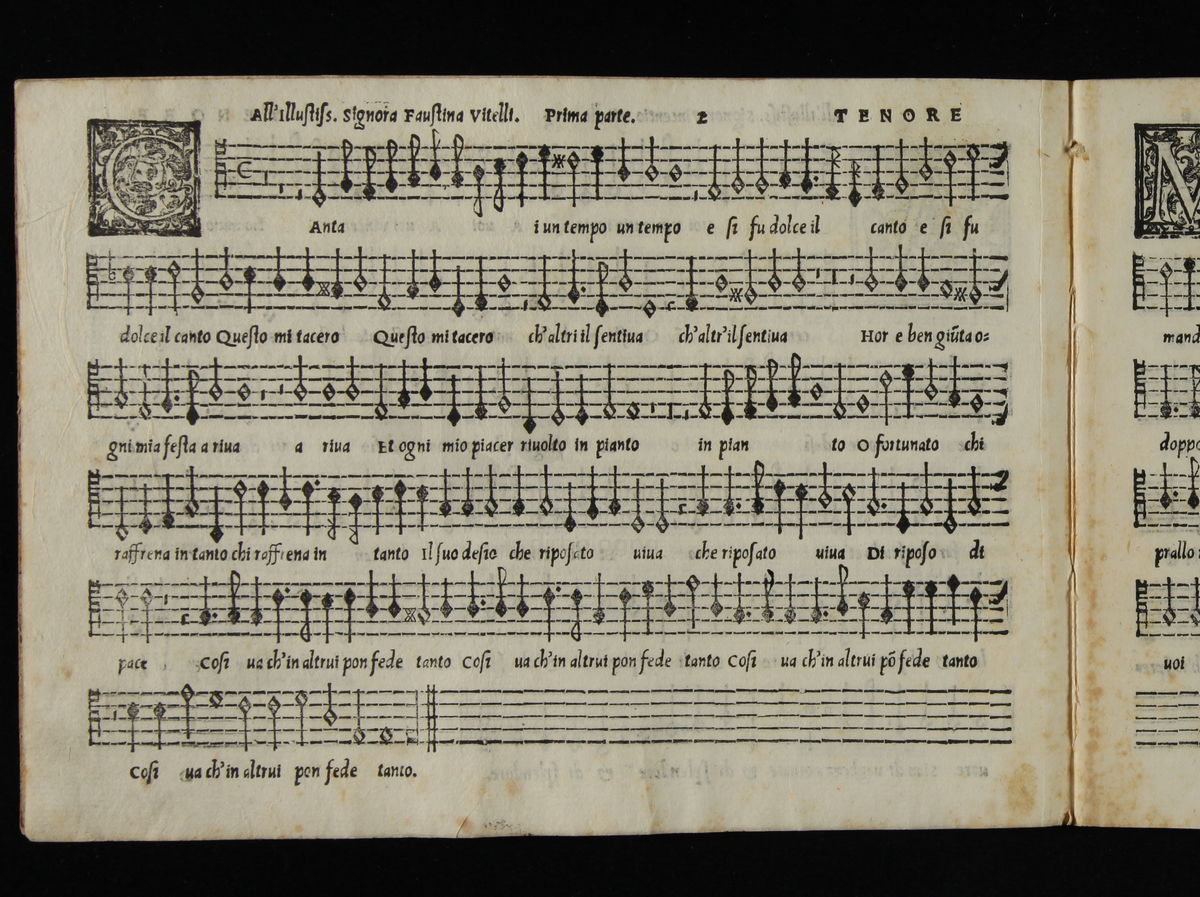 All'Illustiss. Signora Faustina Vitelli. Prima parte. 2 TENORE
C Anta i un tempo un tempo e si fu dolce il canto e si fu
dolce il canto Questo mi tacero Questo mi tacero ch'altri il sentiua ch'altr'il sentiua Hor e ben giũta o=
gni mia festa a riua a riua Et ogni mio piacer riuolto in pianto in pian to O fortunato chi
raffrena in tanto chi raffrena in tanto Il suo desio che riposato uiua che riposato uiua Di riposo di
pace Cosi ua ch'in altrui pon fede tanto Cosi ua ch'in altrui pon fede tanto Cosi ua ch'in altrui põ fede tanto
Cosi ua ch'in altrui pon fede tanto.
M
mand
doppo
prallo
uoi